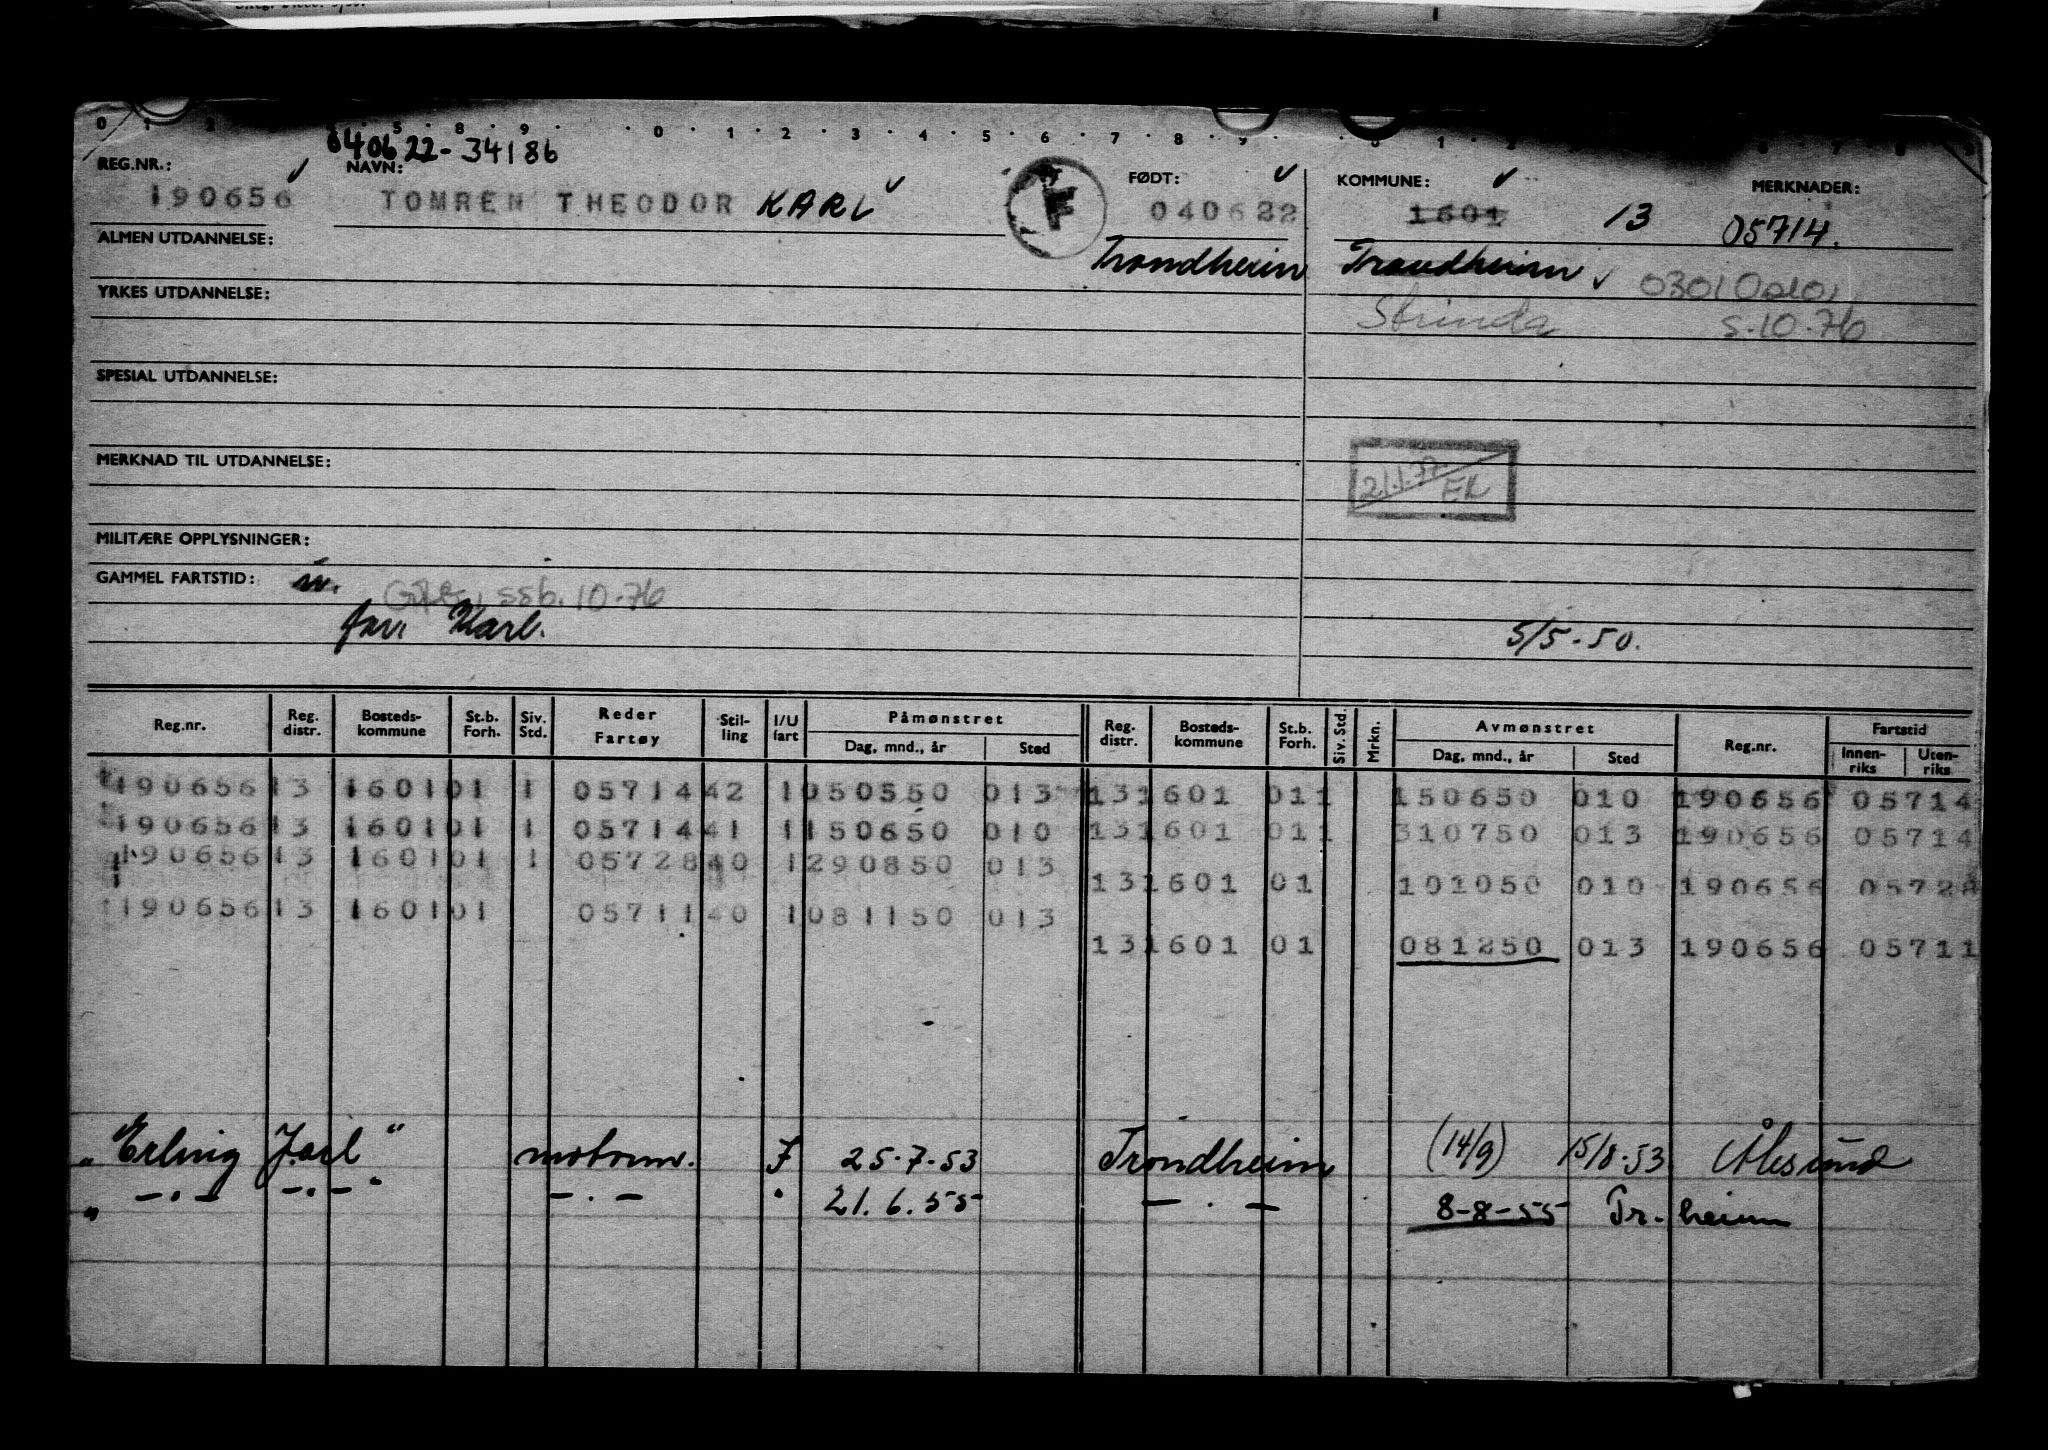 040622-34186
REG.NR.: NAVN: FØDT: KOMMUNE: MERKNADER:
190656 TOMREN THEODOR KARL F 040622 1601 13 05714.
ALMEN UTDANNELSE: Trondheim Trondheim 0301 Oslo,
YRKES UTDANNELSE: Strinda S.10.76
SPESIAL UTDANNELSE:
MERKNAD TIL UTDANNELSE: 21.1.77 EK
MILITÆRE OPPLYSNINGER:
GAMMEL FARTSTID:
ssb. 10-76
Karl. 5/5-50.
Reg.nr. Reg. distr. Bosteds-kommune St.b. Forh. Siv. Std. Reder Fartøy Stil-ling I/U fart Påmønstret Dag, mnd., år Sted Reg. distr. Bosteds-kommune St.b. Forh. Siv. Std. Mrkn. Avmønstret Dag, mnd., år Sted Reg.nr. Fartstid Innen-riks Uten-riks
190656 13 1601 01 1 05714 42 1 050550 013 13 1601 01 1 150650 010 190656 05714
190656 13 1601 01 1 05714 41 1 150650 010 13 1601 01 1 310750 013 190656 05714
190656 13 1601 01 1 05728 40 1 290850 013
13 1601 01 101050 010 190656 05728
190656 13 1601 01 05711 40 1 081150 013
13 1601 01 081250 013 190656 05711
"Erling Jarl" motorm. I 25-7-53 Trondheim (14/9) 15/8-53 Ålesund
" -.- -.- " -.- " 21.6.55 -.- 8-8-55 Tr.heim